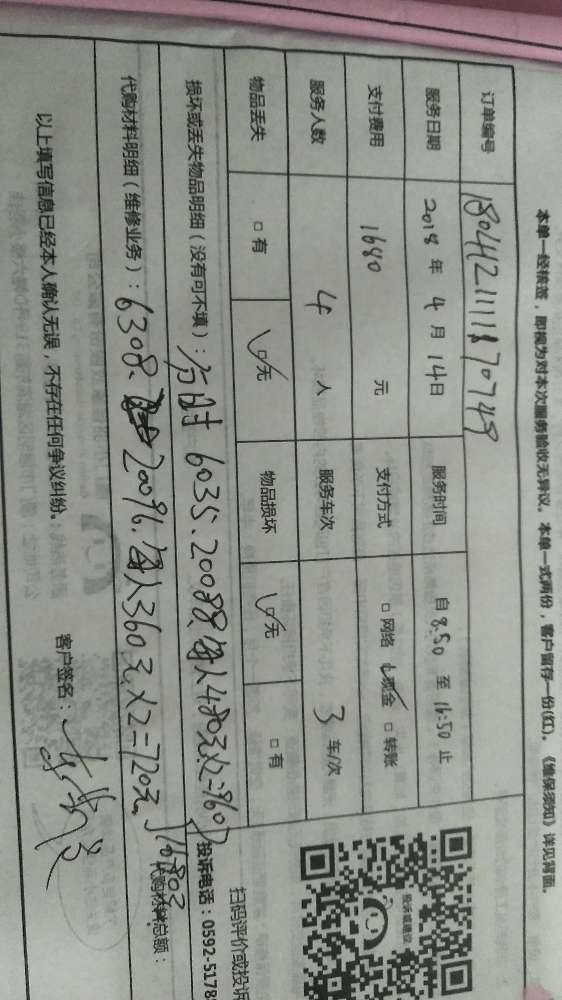 本单一经核签，即视为对本次服务验收无异议。本单一式两份，客户留存一份(红)。《维保须知》详见背面。
订单编号
服务日期 2018 年 4 月 14 日 服务时间 自 8:50 至 16:50 止
支付费用 1680 元 支付方式 □ 网络 ☑ 现金 □ 转账
服务人数 4 人 服务车次 3 车/次
物品丢失 □ 有 ☑ 无 物品损坏 ☑ 无 □ 有
损坏或丢失物品明细（没有可不填）： 6035、20088 每人480元×2=960
代购材料明细（维修业务）：6308、20096、每人360元×2=720元
代购材料总额：
以上填写信息已经本人确认无误，不存在任何争议纠纷。
客户签名：
投诉或建议
扫码评价或投诉
投诉电话：0592-5178